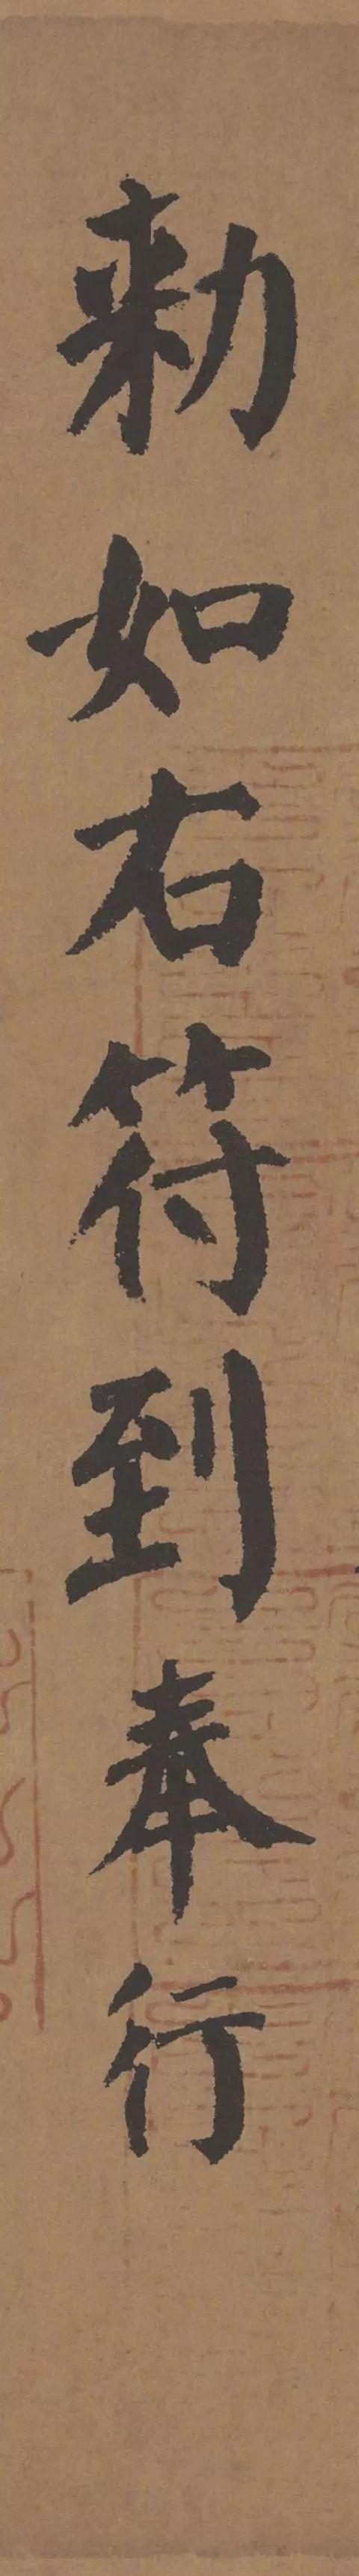 勑如右符到奉行